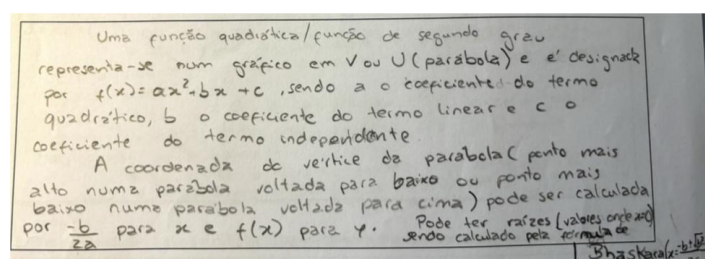 Uma função quadrática/função de segundo grau
representa-se num gráfico em V ou U (parábola) e é designada
por f(x)=ax²+bx+c, sendo a o coeficiente do termo
quadrático, b o coeficiente do termo linear e c o
coeficiente do termo independente.
A coordenada do vértice da parábola (ponto mais
alto numa parábola voltada para baixo ou ponto mais
baixo numa parábola voltada para cima) pode ser calculada
por -b/2a para x e f(x) para y. Pode ter raízes (valores onde x=0)
sendo calculado pela fórmula de
Bhaskara (x=-b±√